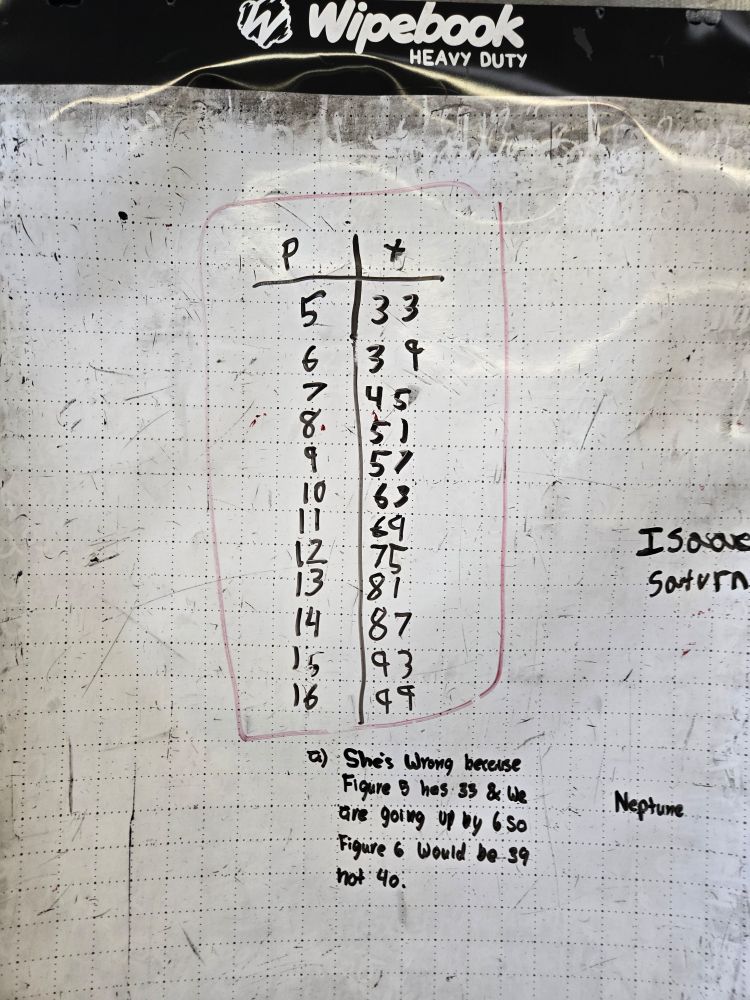 Wipebook
HEAVY DUTY
P t
5 33
6 39
7 45
8 51
9 57
10 63
11 69
12 75
13 81
14 87
15 93
16 99
a) She's Wrong because
Figure 5 has 33 & We
are going up by 6 So
Figure 6 Would be 39
not 40.
Saturn
Neptune